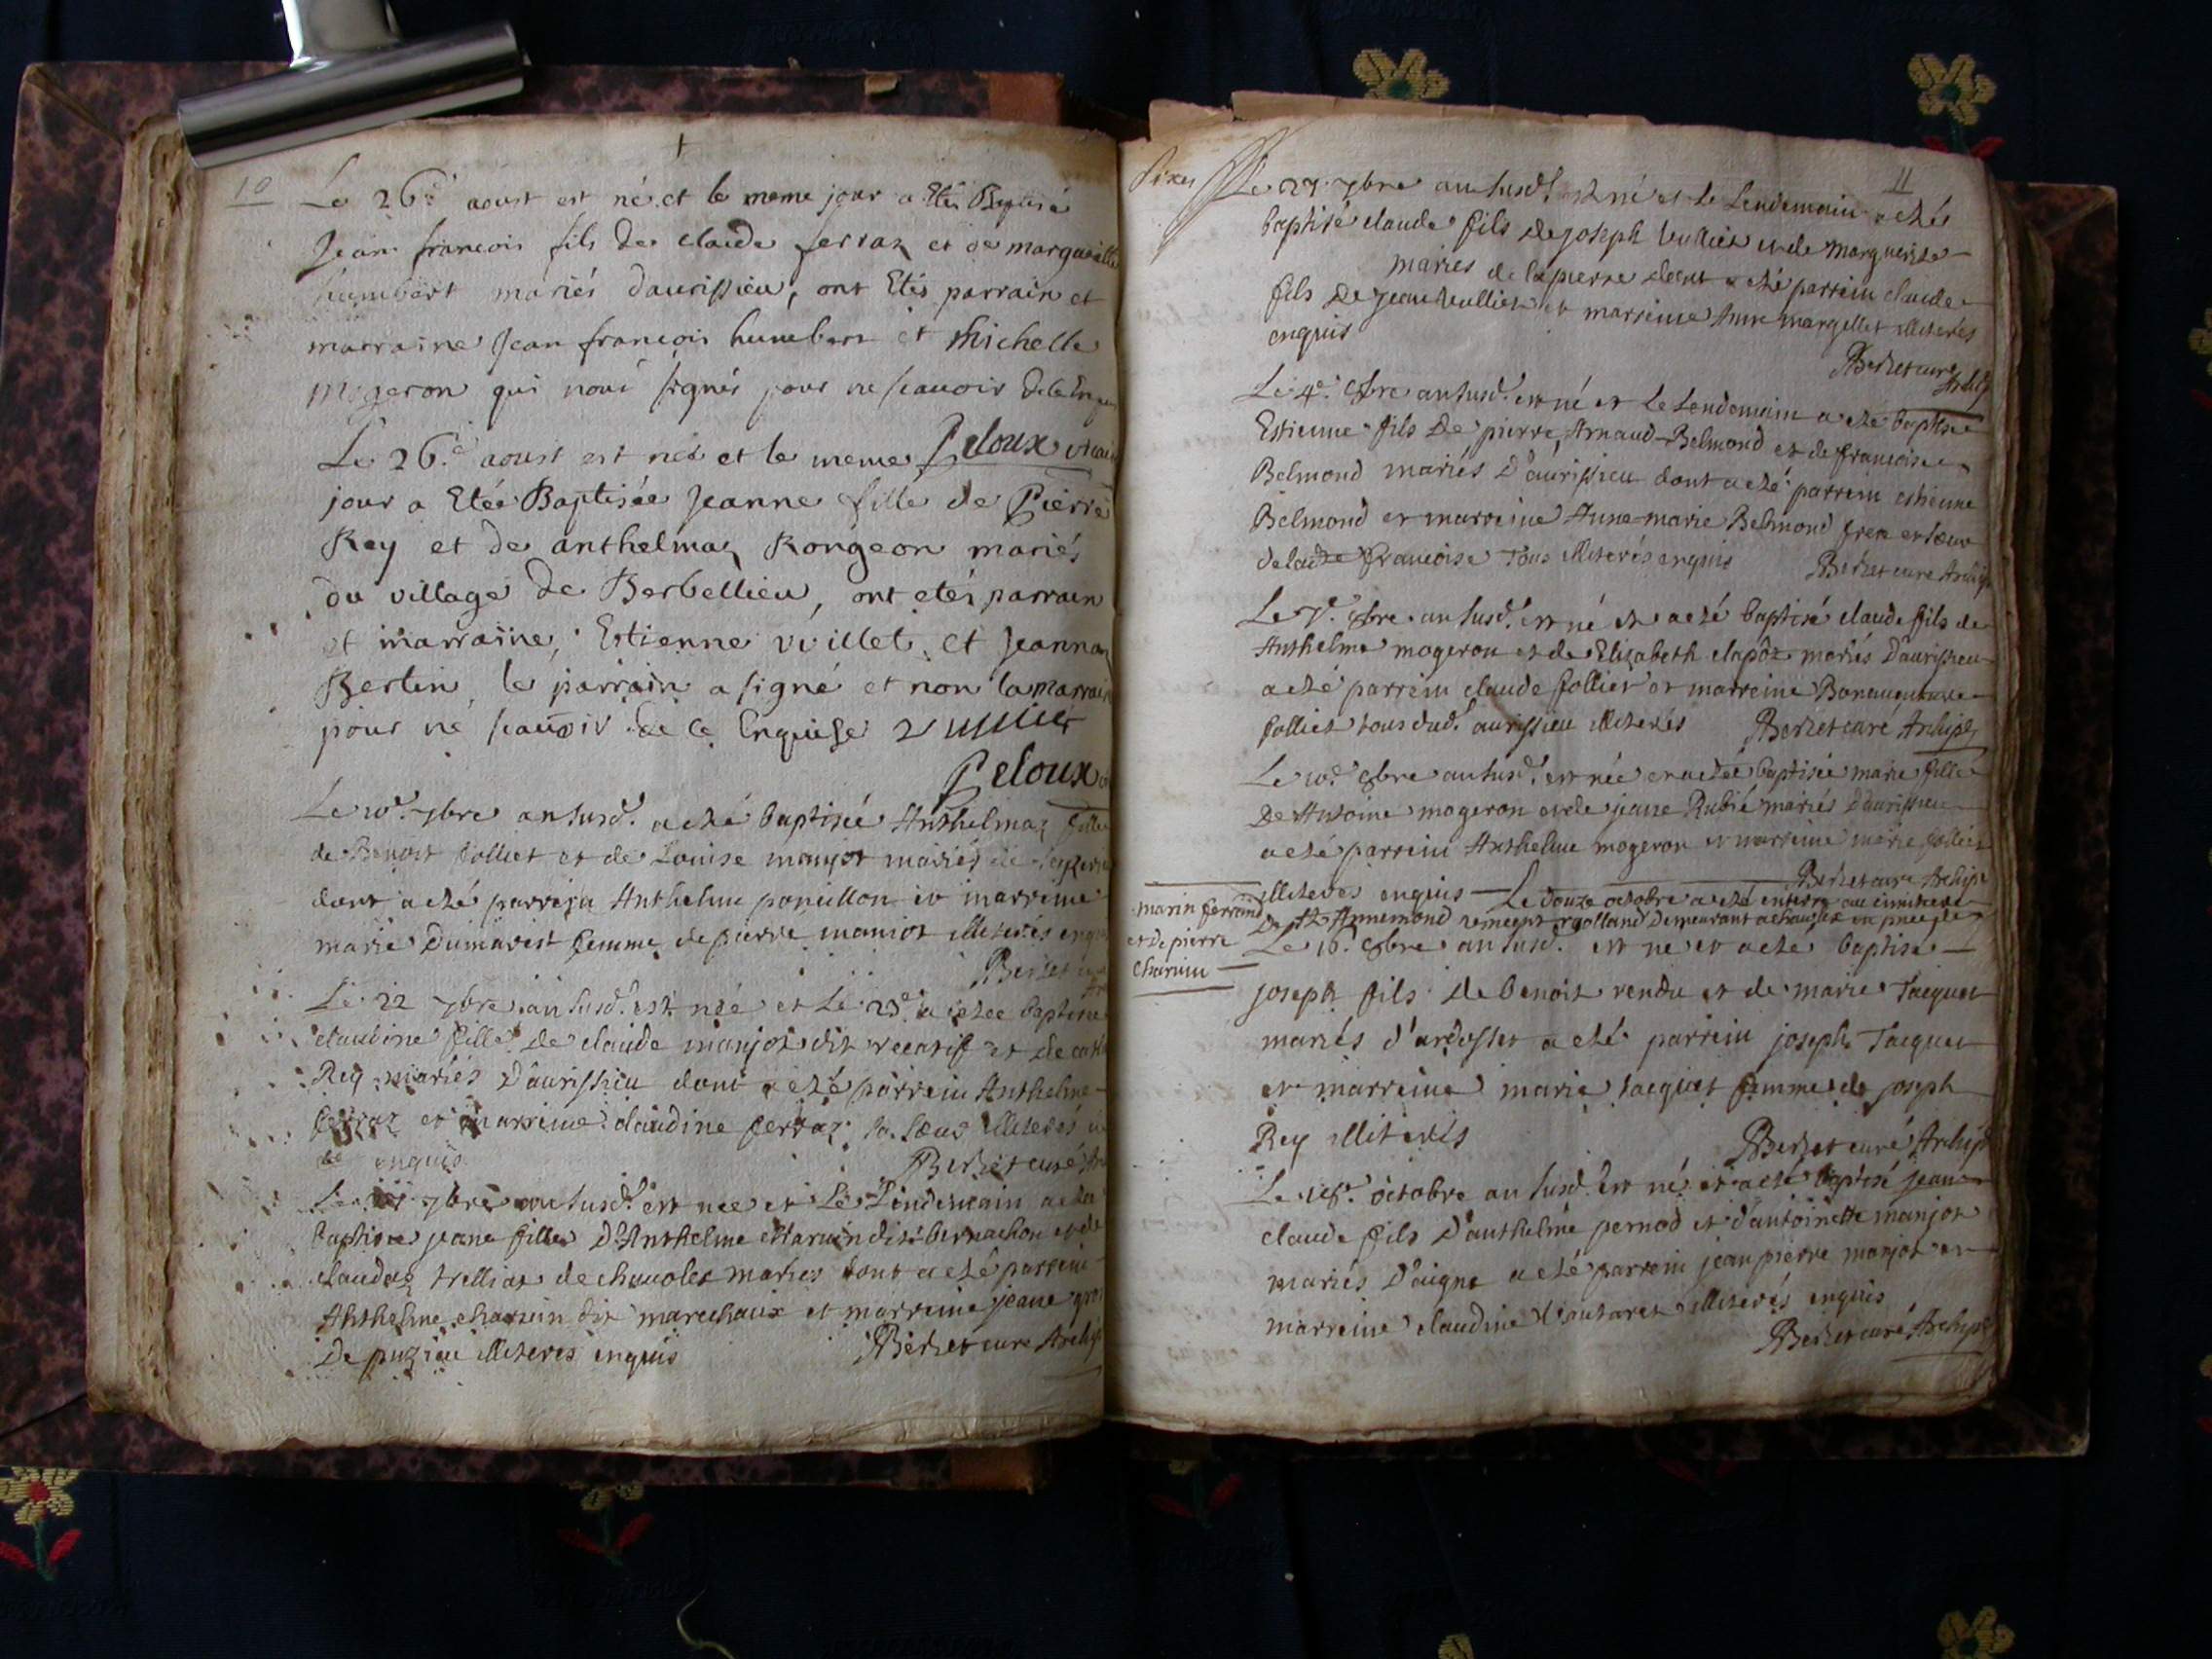 10
Le 26e aoust est né et le meme jour a Eté Baptisé
Jean francois fils de claude ferraz et de margueritte
humbert mariés daurissieu, ont Etés parrain et
marraine Jean francois humbert et Michelle
Mogeron qui n'ont signés pour ne scauoir de ce Enquis
Peloux vicaire
Le 26.e aoust est née et le meme
jour a Etée Baptisée Jeanne fille de Pierre
Rey et de anthelmaz Rongeon mariés
du village de Berbellieu, ont etés parrain
et marraine, Estienne vuillet et Jeannaz
Bertin le parrain a signé et non la marraine
pour ne scauoir de ce Enquise vuillet
Peloux
Le 10e 7bre an susd. a eté baptisée Anthelmaz fille
de Benoit folliet et de Louise manjot mariés de
dont a eté parrein Anthelme ponsillon et marreine
marie Dumarest femme de pierre manjot illiterés enquis
Berzet
Le 22 7bre an susd. est née et Le 23e a etée baptisée
claudine fille de claude manjot dit recatif et de
Rey mariés D'aurissieu dont a eté parrein Anthelme
ferraz et marreine claudine ferraz sa soeur illiterés
de enquis
Berzet curé
Le 7bre an susd. est née et Le Lendemain a eté
baptisée jeane fille D'Anthelme Charvin dit bernachon et de
claudaz trelliat de chauolet mariés dont a eté parrein
Anthelme charvin dit marechaux et marreine jeane
De pugieu illiterés enquis
Berzet curé Archip
11
Le 27 7bre an susd. est né et le Lendemain a eté
baptisé claude fils de joseph vulliet et de marguerite
mariés de la pierre dont a eté parrein claude
fils de jean vulliet et marreine Anne margellet illiterés
enquis
Berzet curé
Archip
Le 4e. 8bre an susd. est né et le Lendemain a eté baptisé
Estienne fils de pierre Arnaud-Belmond et de francoise
Belmond mariés D'aurissieu dont a eté parrein estienne
Belmond et marreine Anne-marie Belmond frere et soeur
de ladte francoise tous illiterés enquis
Berzet curé Archip
Le 8bre an susd. est né et a eté baptisé claude fils de
Anthelme mogeron et de Elizabeth clapôz mariés D'aurissieu
a eté parrein claude folliet et marreine Bonauenture
folliet tous dud. aurissieu illiterés
Berzet curé Archip
Le 10e. 8bre an susd. est née et a eté baptisée marie fille
De Antoine mogeron et de jeane Rubié mariés d'aurissieu
a eté parrein Anthelme mogeron et marreine marie folliet
illiterés enquis
Berzet curé Archip
Le douze octobre a eté enterré au cimitiere
De St Annemond demeurant
marin ferrand
et de pierre
Charvin
Le 16. 8bre an susd. est né et a eté baptisé
joseph fils de benoit rendu et de marie Jacquet
mariés d'ardosset a eté parrein joseph Jacquet
et marreine marie Jacquet femme de joseph
Rey illiterés
Berzet curé Archip
Le octobre an susd. est né et a eté baptisé jean
claude fils D'anthelme pernod et d'antoinette manjot
mariés D'aigne a eté parrein jean pierre manjot et
marreine claudine illiterés enquis
Berzet curé Archip